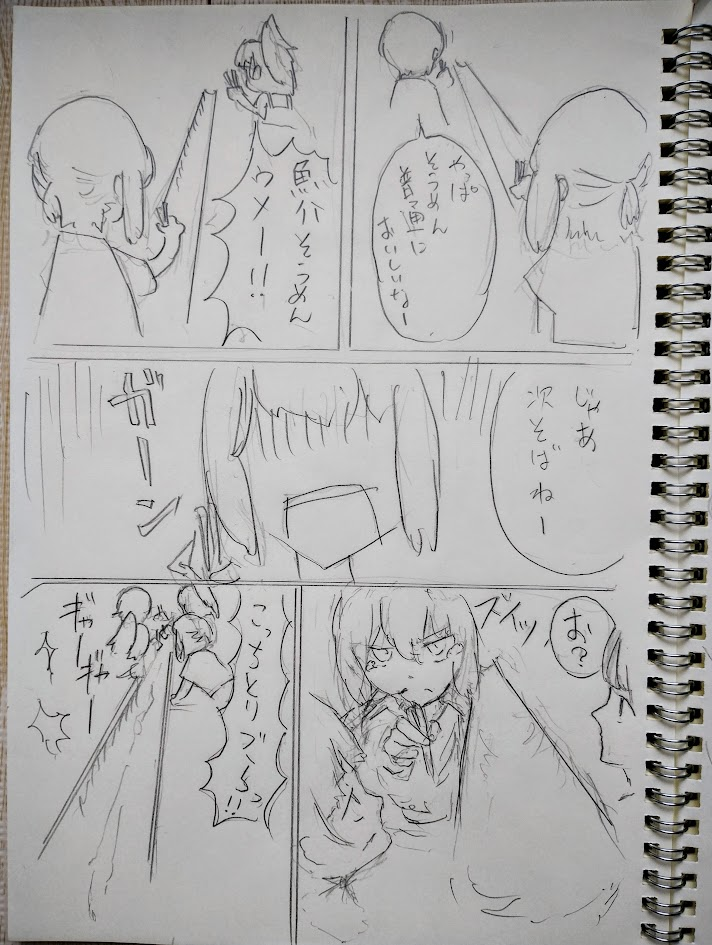 やっぱ
そうめん
普通に
おいしいなー
魚介そうめん
ウメー!!
じゃあ
次そばねー
ガーン
お?
ズイッ
ギャーギャー